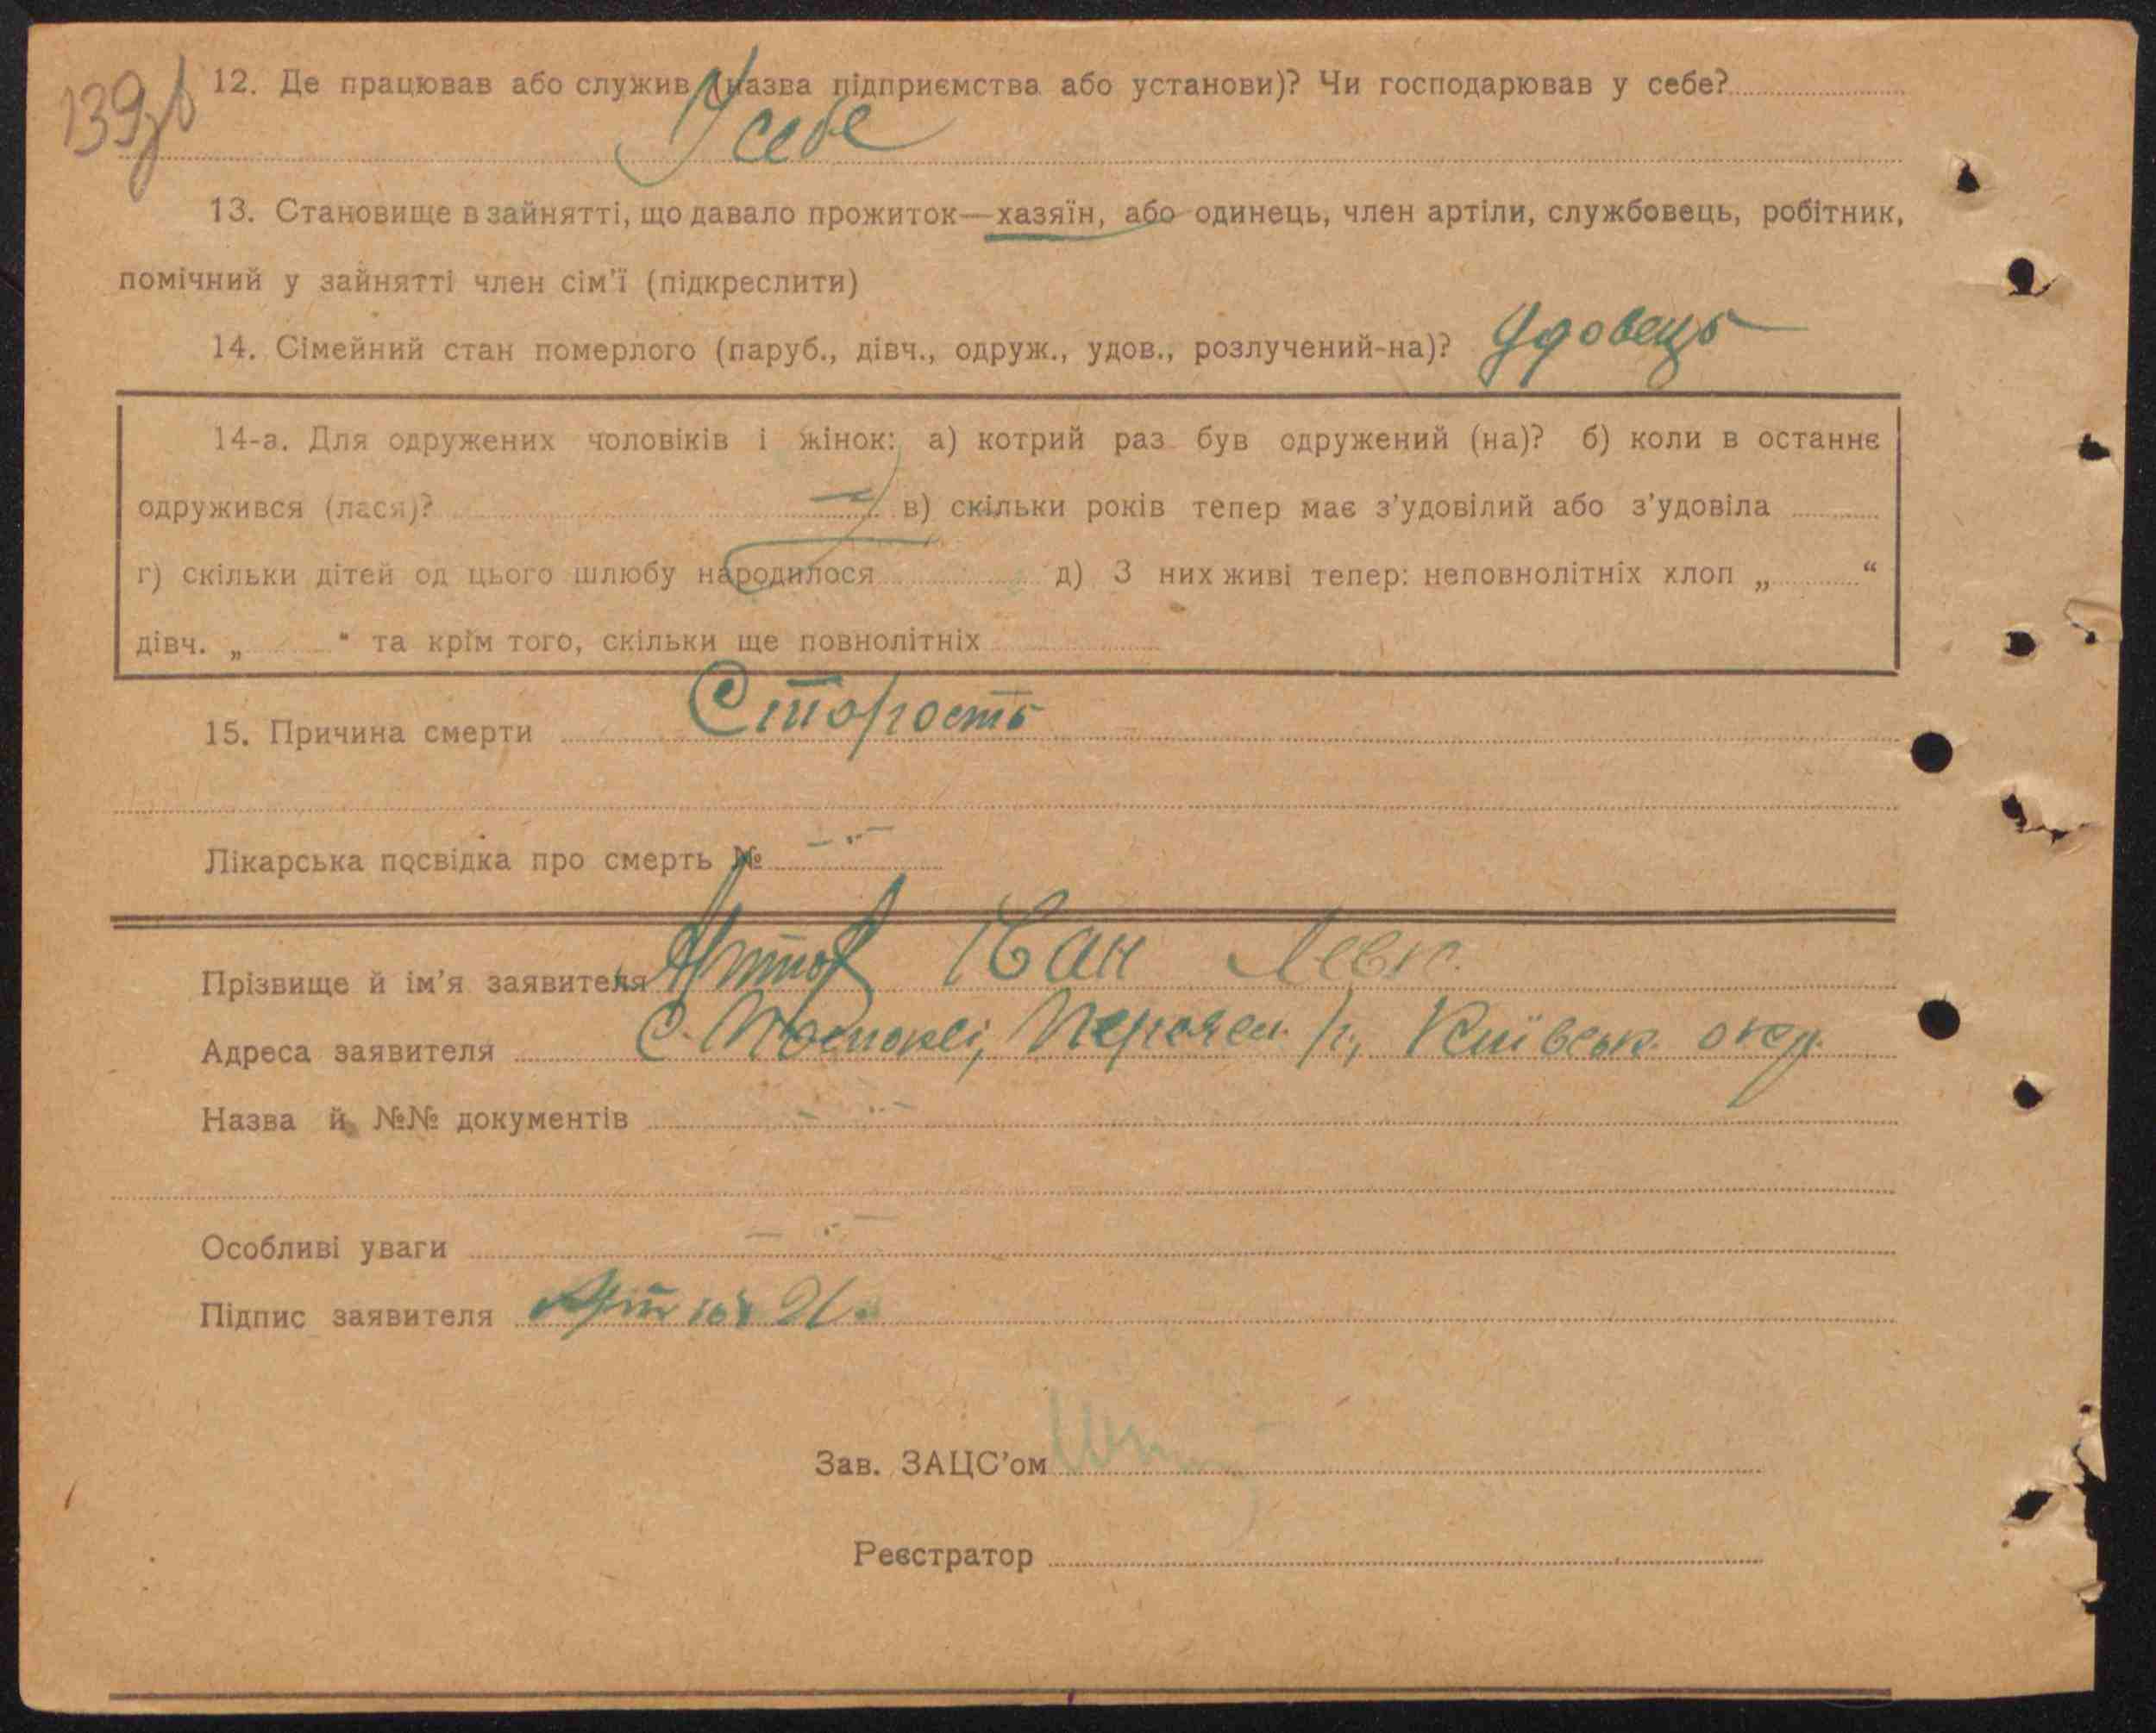 139зв
12. Де працював або служив (назва підприємства або установи)? Чи господарював у себе?
У себе
13. Становище в зайнятті, що давало прожиток—хазяїн, або одинець, член артіли, службовець, робітник,
помічний у зайнятті член сім'ї (підкреслити)
14. Сімейний стан померлого (паруб., дівч., одруж., удов., розлучений-на)? Удовець
14-а. Для одружених чоловіків і жінок: а) котрий раз був одружений (на)? б) коли в останнє
одружився (лася)? в) скільки років тепер має з'удовілий або з'удовіла
г) скільки дітей од цього шлюбу народилося д) З них живі тепер: неповнолітніх хлоп „ “
дівч. „ “ та крім того, скільки ще повнолітніх
15. Причина смерти Старость
Лікарська посвідка про смерть №
Прізвище й ім'я заявителя Іван Левк.
Адреса заявителя С. Київськ. окр.
Назва й №№ документів
Особливі уваги
Підпис заявителя
Зав. ЗАЦС'ом
Реєстратор